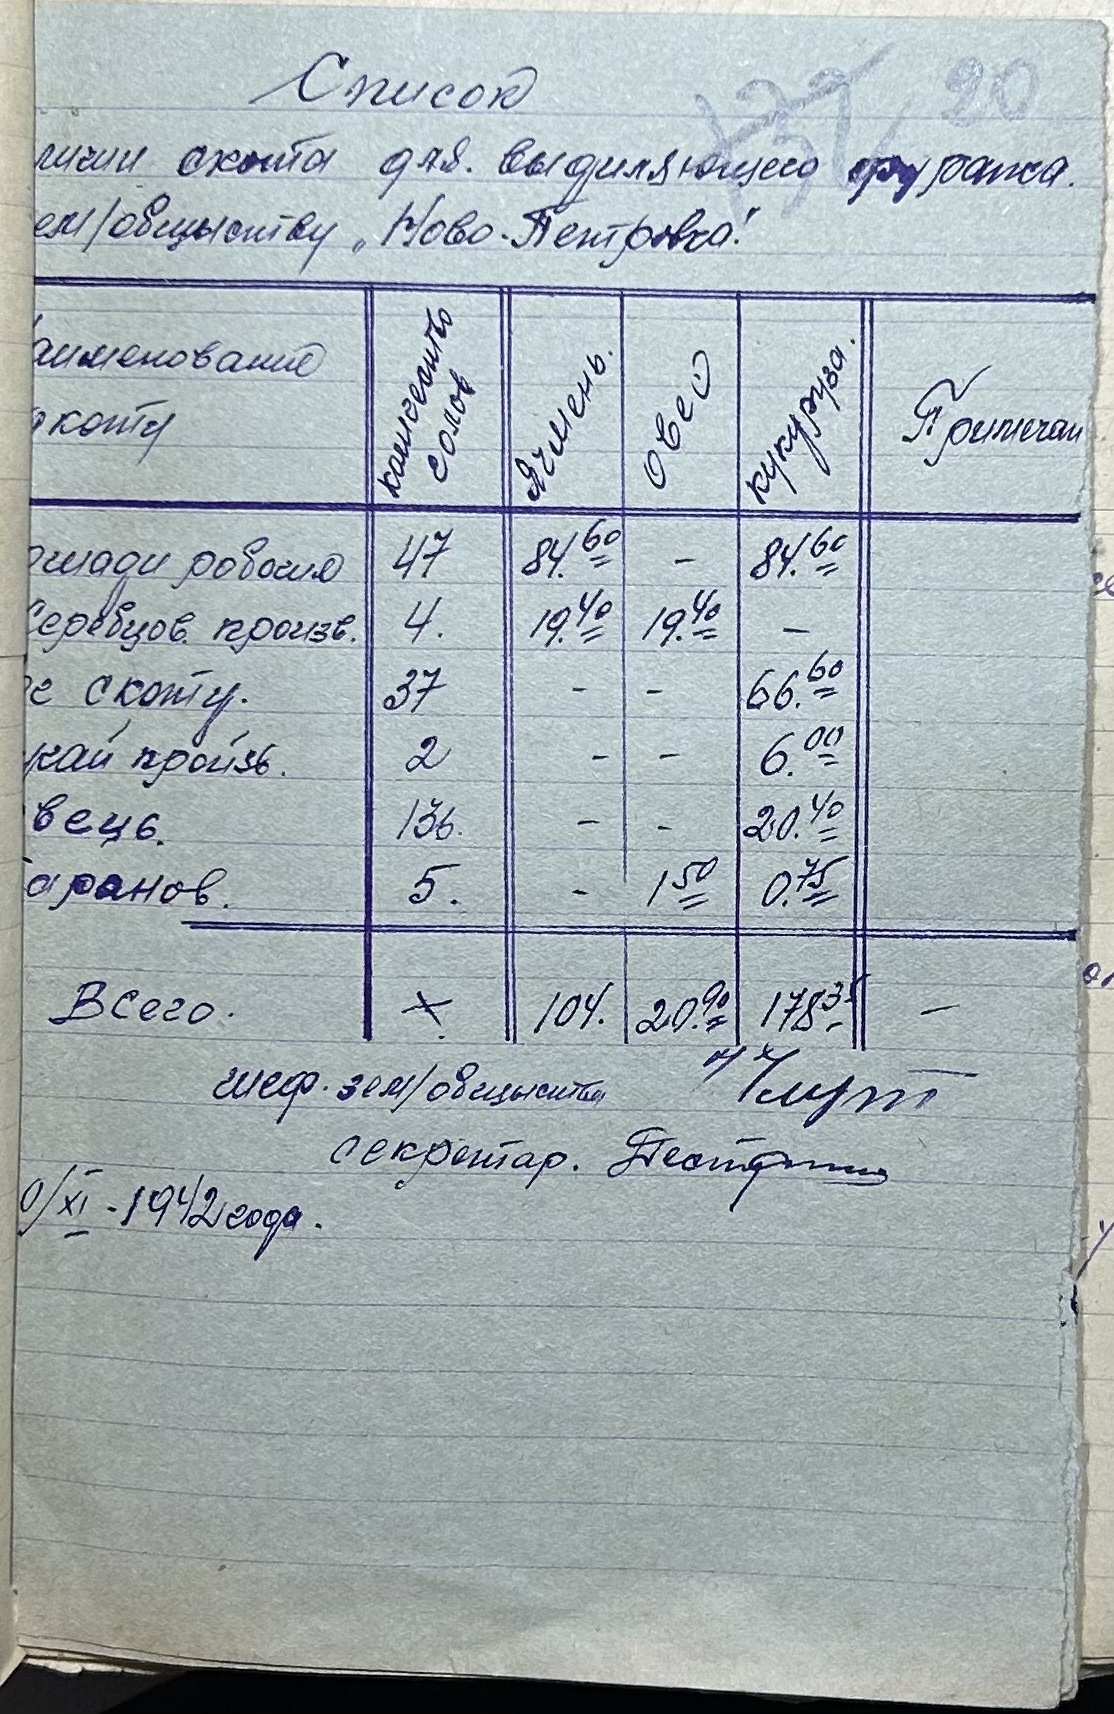 Список
20
личии скота для. выдиляющего фуража.
ем/общыству „Ново-Пентровка"
аименование скоту | количество голов | Ячмень. | Овес | кукуруза. | Примечан
ошади робочие | 47 | 84.60 | - | 84.60
еребцов. произв. | 4. | 19.40 | 19.40 | -
ог скоту. | 37 | - | - | 66.60
укай произв. | 2 | - | - | 6.00
вець. | 136. | - | - | 20.40
аранов. | 5. | - | 1 50 | 0.75
Всего. | х. | 104. | 20.90 | 178 35 | -
шеф. зем/общыства
секретар.
0/XI - 1942 года.